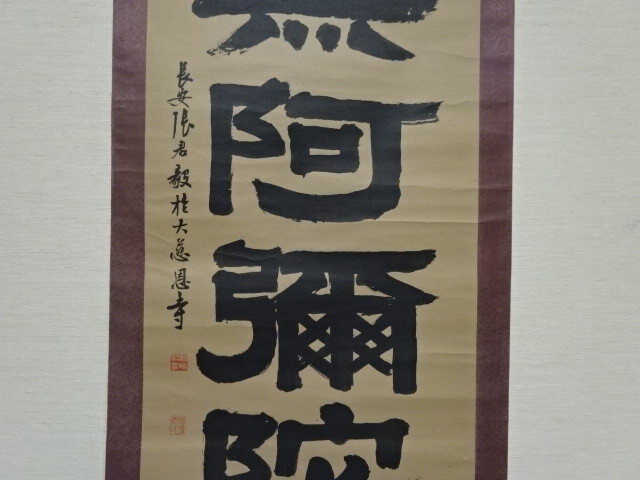 無阿彌陀
長安張君毅於大慈恩寺